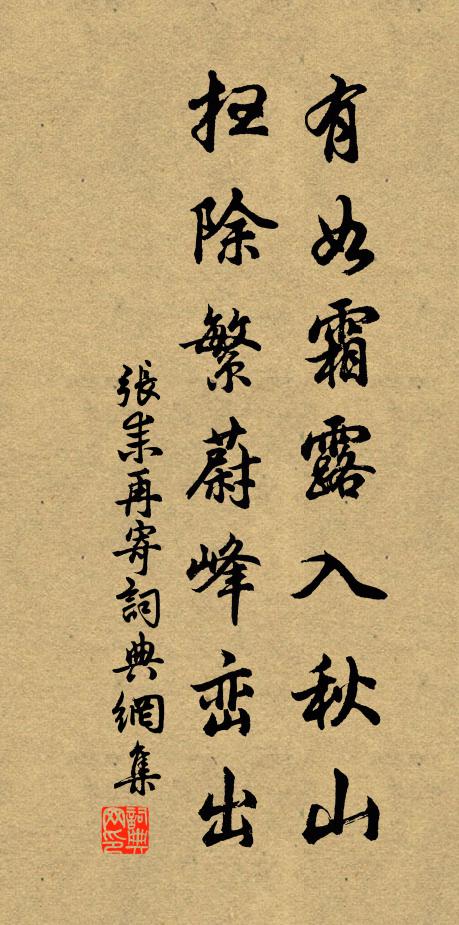 有如霜露入秋山
扫除繁蔚峰峦出
張耒再寄詞典網集
詞典网印